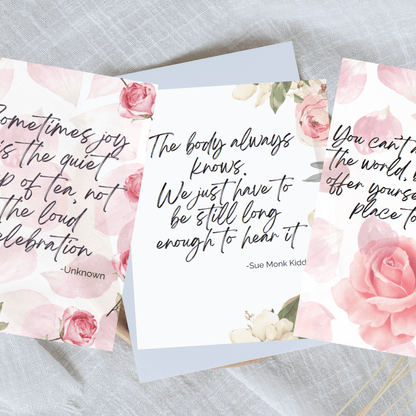 Sometimes joy
is the quiet
of tea, not
the loud
celebration
-Unknown
The body always
knows.
We just have to
be still long
enough to hear it
-Sue Monk Kidd
You can't
the world,
offer yourse
place to